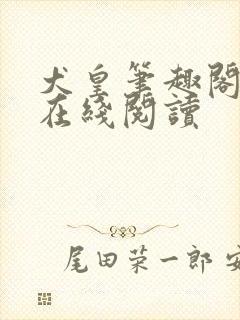 犬皇筆趣閣
在綫閱讀
尾田荣一郎